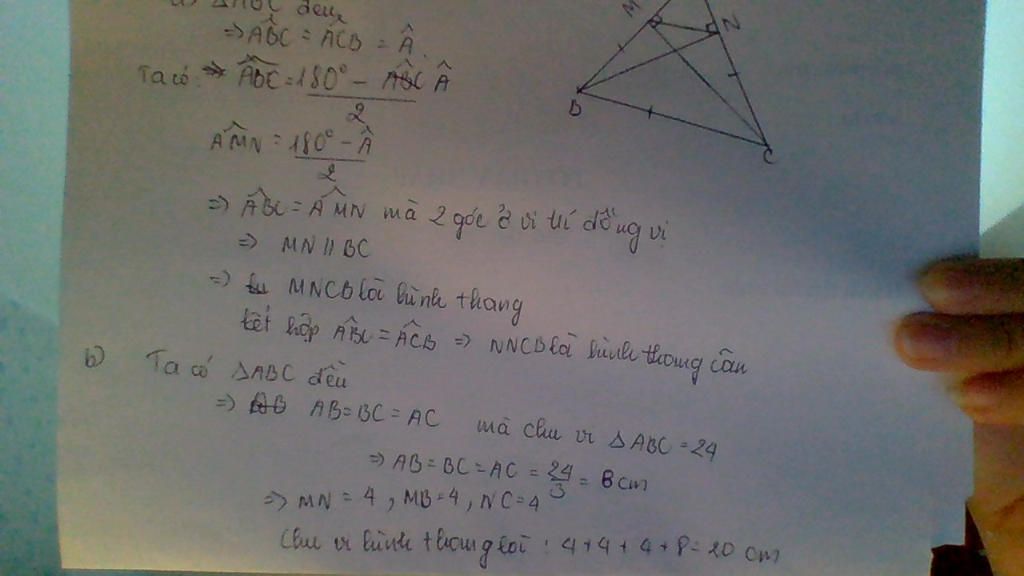 a) ΔABC đều
M
N
⇒ ABC = ACB = Â.
Ta có: ABC = 180° - Â / 2
B
C
AMN = 180° - Â / 2
⇒ ABC = AMN mà 2 góc ở vị trí đồng vị
⇒ MN // BC
⇒ MNCB là hình thang
kết hợp ABC = ACB ⇒ NNCB là hình thang cân
b) Ta có ΔABC đều
⇒ AB = BC = AC mà chu vi ΔABC = 24
⇒ AB = BC = AC = 24/3 = 8 cm
⇒ MN = 4, MB = 4, NC = 4
Chu vi hình thang là : 4 + 4 + 4 + 8 = 20 cm